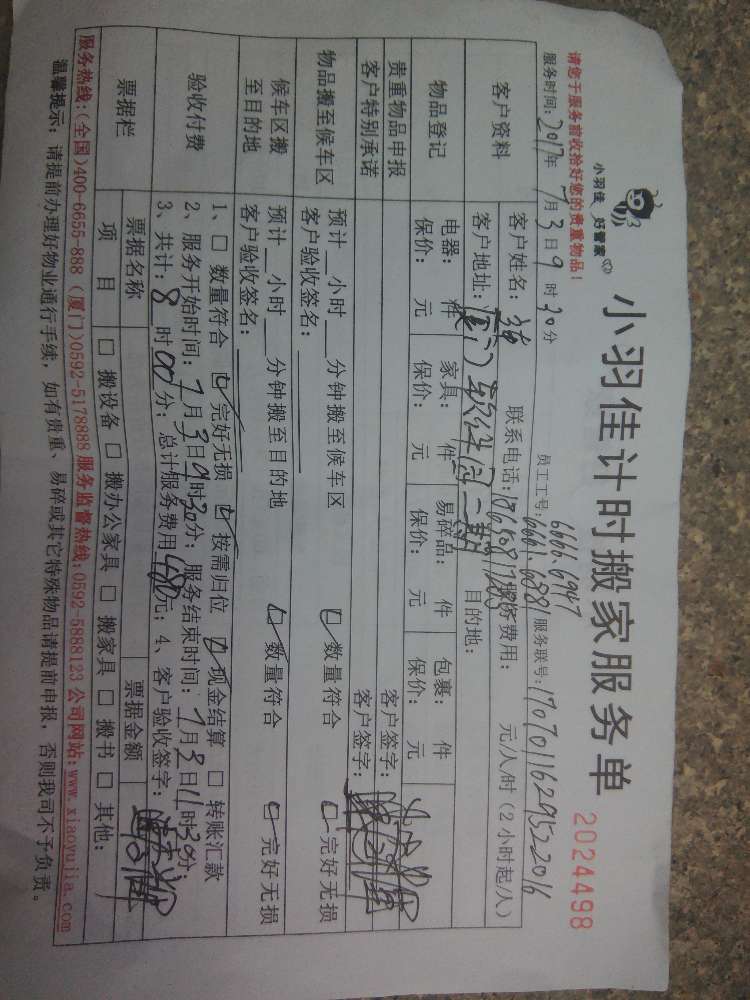 小羽佳 好管家
小羽佳计时搬家服务单
2024498
请您于服务前收拾好您的贵重物品！
员工工号：6666.6947
6661.6881
服务时间：2017年7月3日9时30分
服务联号：
客户资料
客户姓名：
联系电话：
服务费用： 元/人/时（2小时起/人）
客户地址：厦门软件园二期
目的地：
物品登记
电器： 件 家具： 件 易碎品： 件 包裹： 件
保价： 元 保价： 元 保价： 元 保价： 元
贵重物品申报
客户签字：
客户特别承诺
客户签字：
物品搬至候车区
预计 小时 分钟搬至候车区
数量符合
完好无损
客户验收签名：
候车区搬至目的地
预计 小时 分钟搬至目的地
数量符合
完好无损
客户验收签名：
验收付费
1、□ 数量符合 完好无损 按需归位 现金结算 □ 转账汇款
2、服务开始时间：7月3日9时30分；服务结束时间：7月3日11时30分；
3、共计：8时00分；总计服务费用480元；4、客户验收签字：
票据栏
票据名称
票据金额
项 目
□ 搬设备 □ 搬办公家具 □ 搬家具 □ 搬书 □ 其他：
服务热线：（全国）400-6655-888（厦门）0592-5178888 服务监督热线：0592-5888123 公司网站：www.xiaoyujia.com
温馨提示：请提前办理好物业通行手续，如有贵重、易碎或其它特殊物品请提前申报，否则我司不予负责。